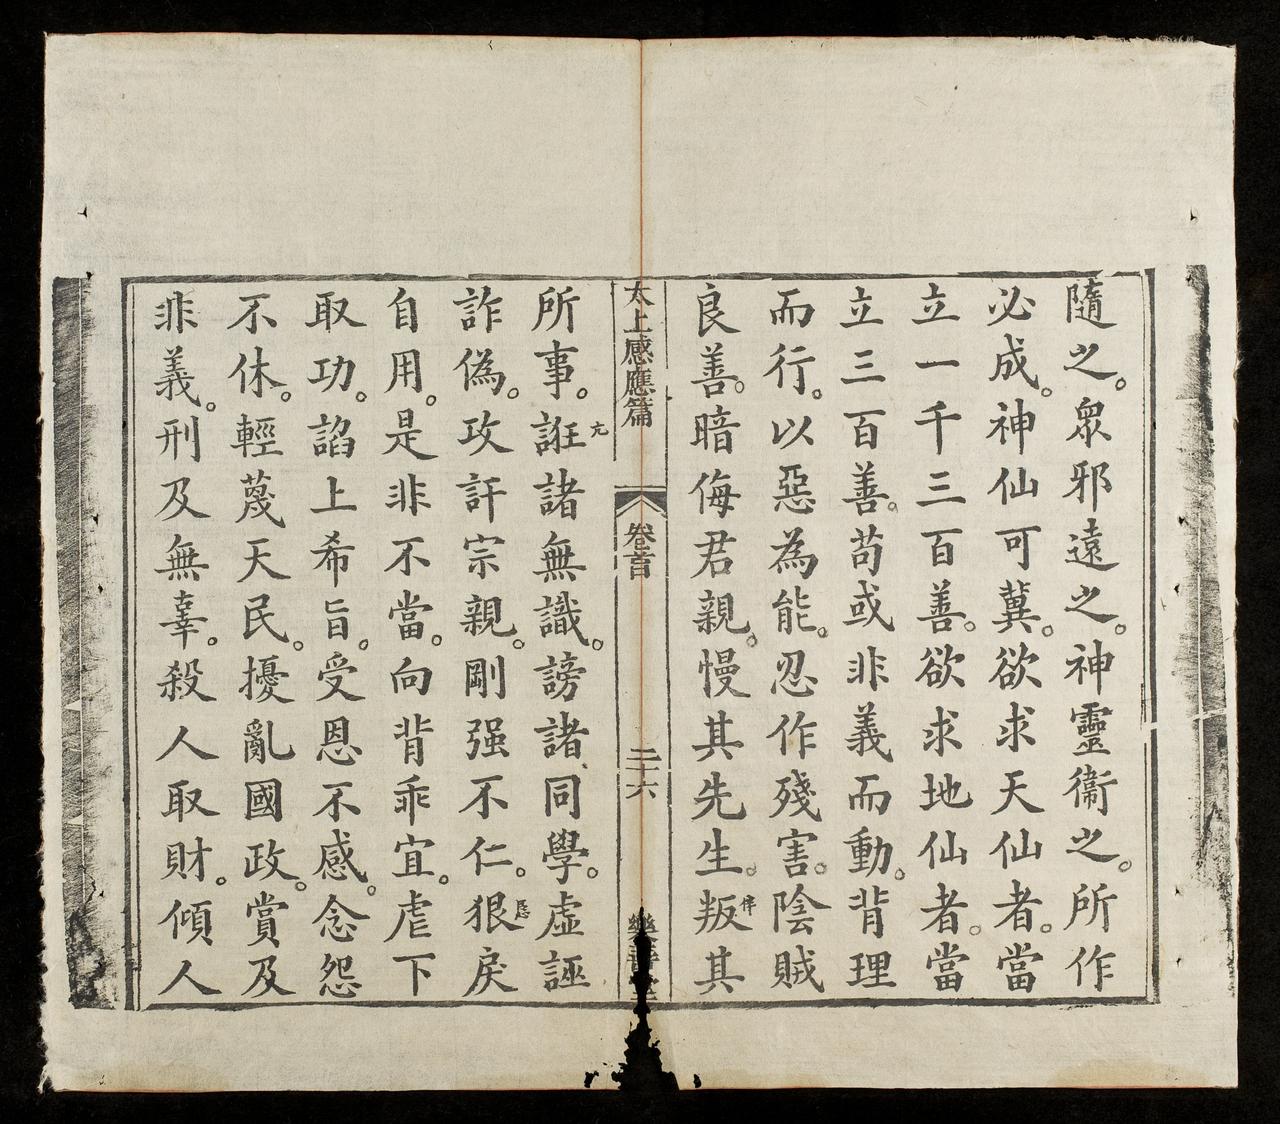 隨之。眾邪遠之。神靈衛之。所作
必成。神仙可冀。欲求天仙者。當
立一千三百善。欲求地仙者。當
立三百善。苟或非義而動。背理
而行。以惡為能。忍作殘害。陰賊
良善。暗侮君親。慢其先生。叛其
太上感應篇
卷首
二十六
樂善堂
所事。誑諸無識。謗諸同學。虛誣
詐偽。攻訐宗親。剛强不仁。狠戾
自用。是非不當。向背乖宜。虐下
取功。諂上希旨。受恩不感。念怨
不休。輕蔑天民。擾亂國政。賞及
非義。刑及無辜。殺人取財。傾人